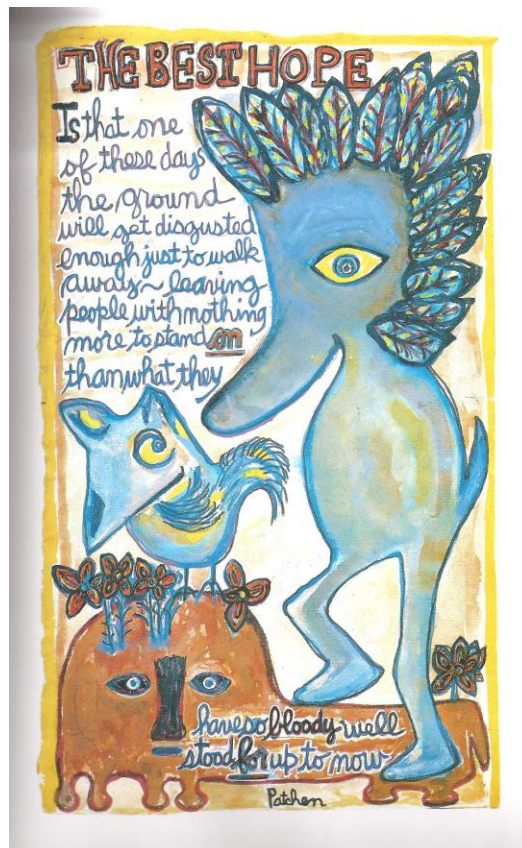 THE BEST HOPE
Is that one
of these days
the ground
will get disgusted
enough just to walk
away~ leaving
people with nothing
more to stand on
than what they
have so bloody well
stood for up to now
Patchen